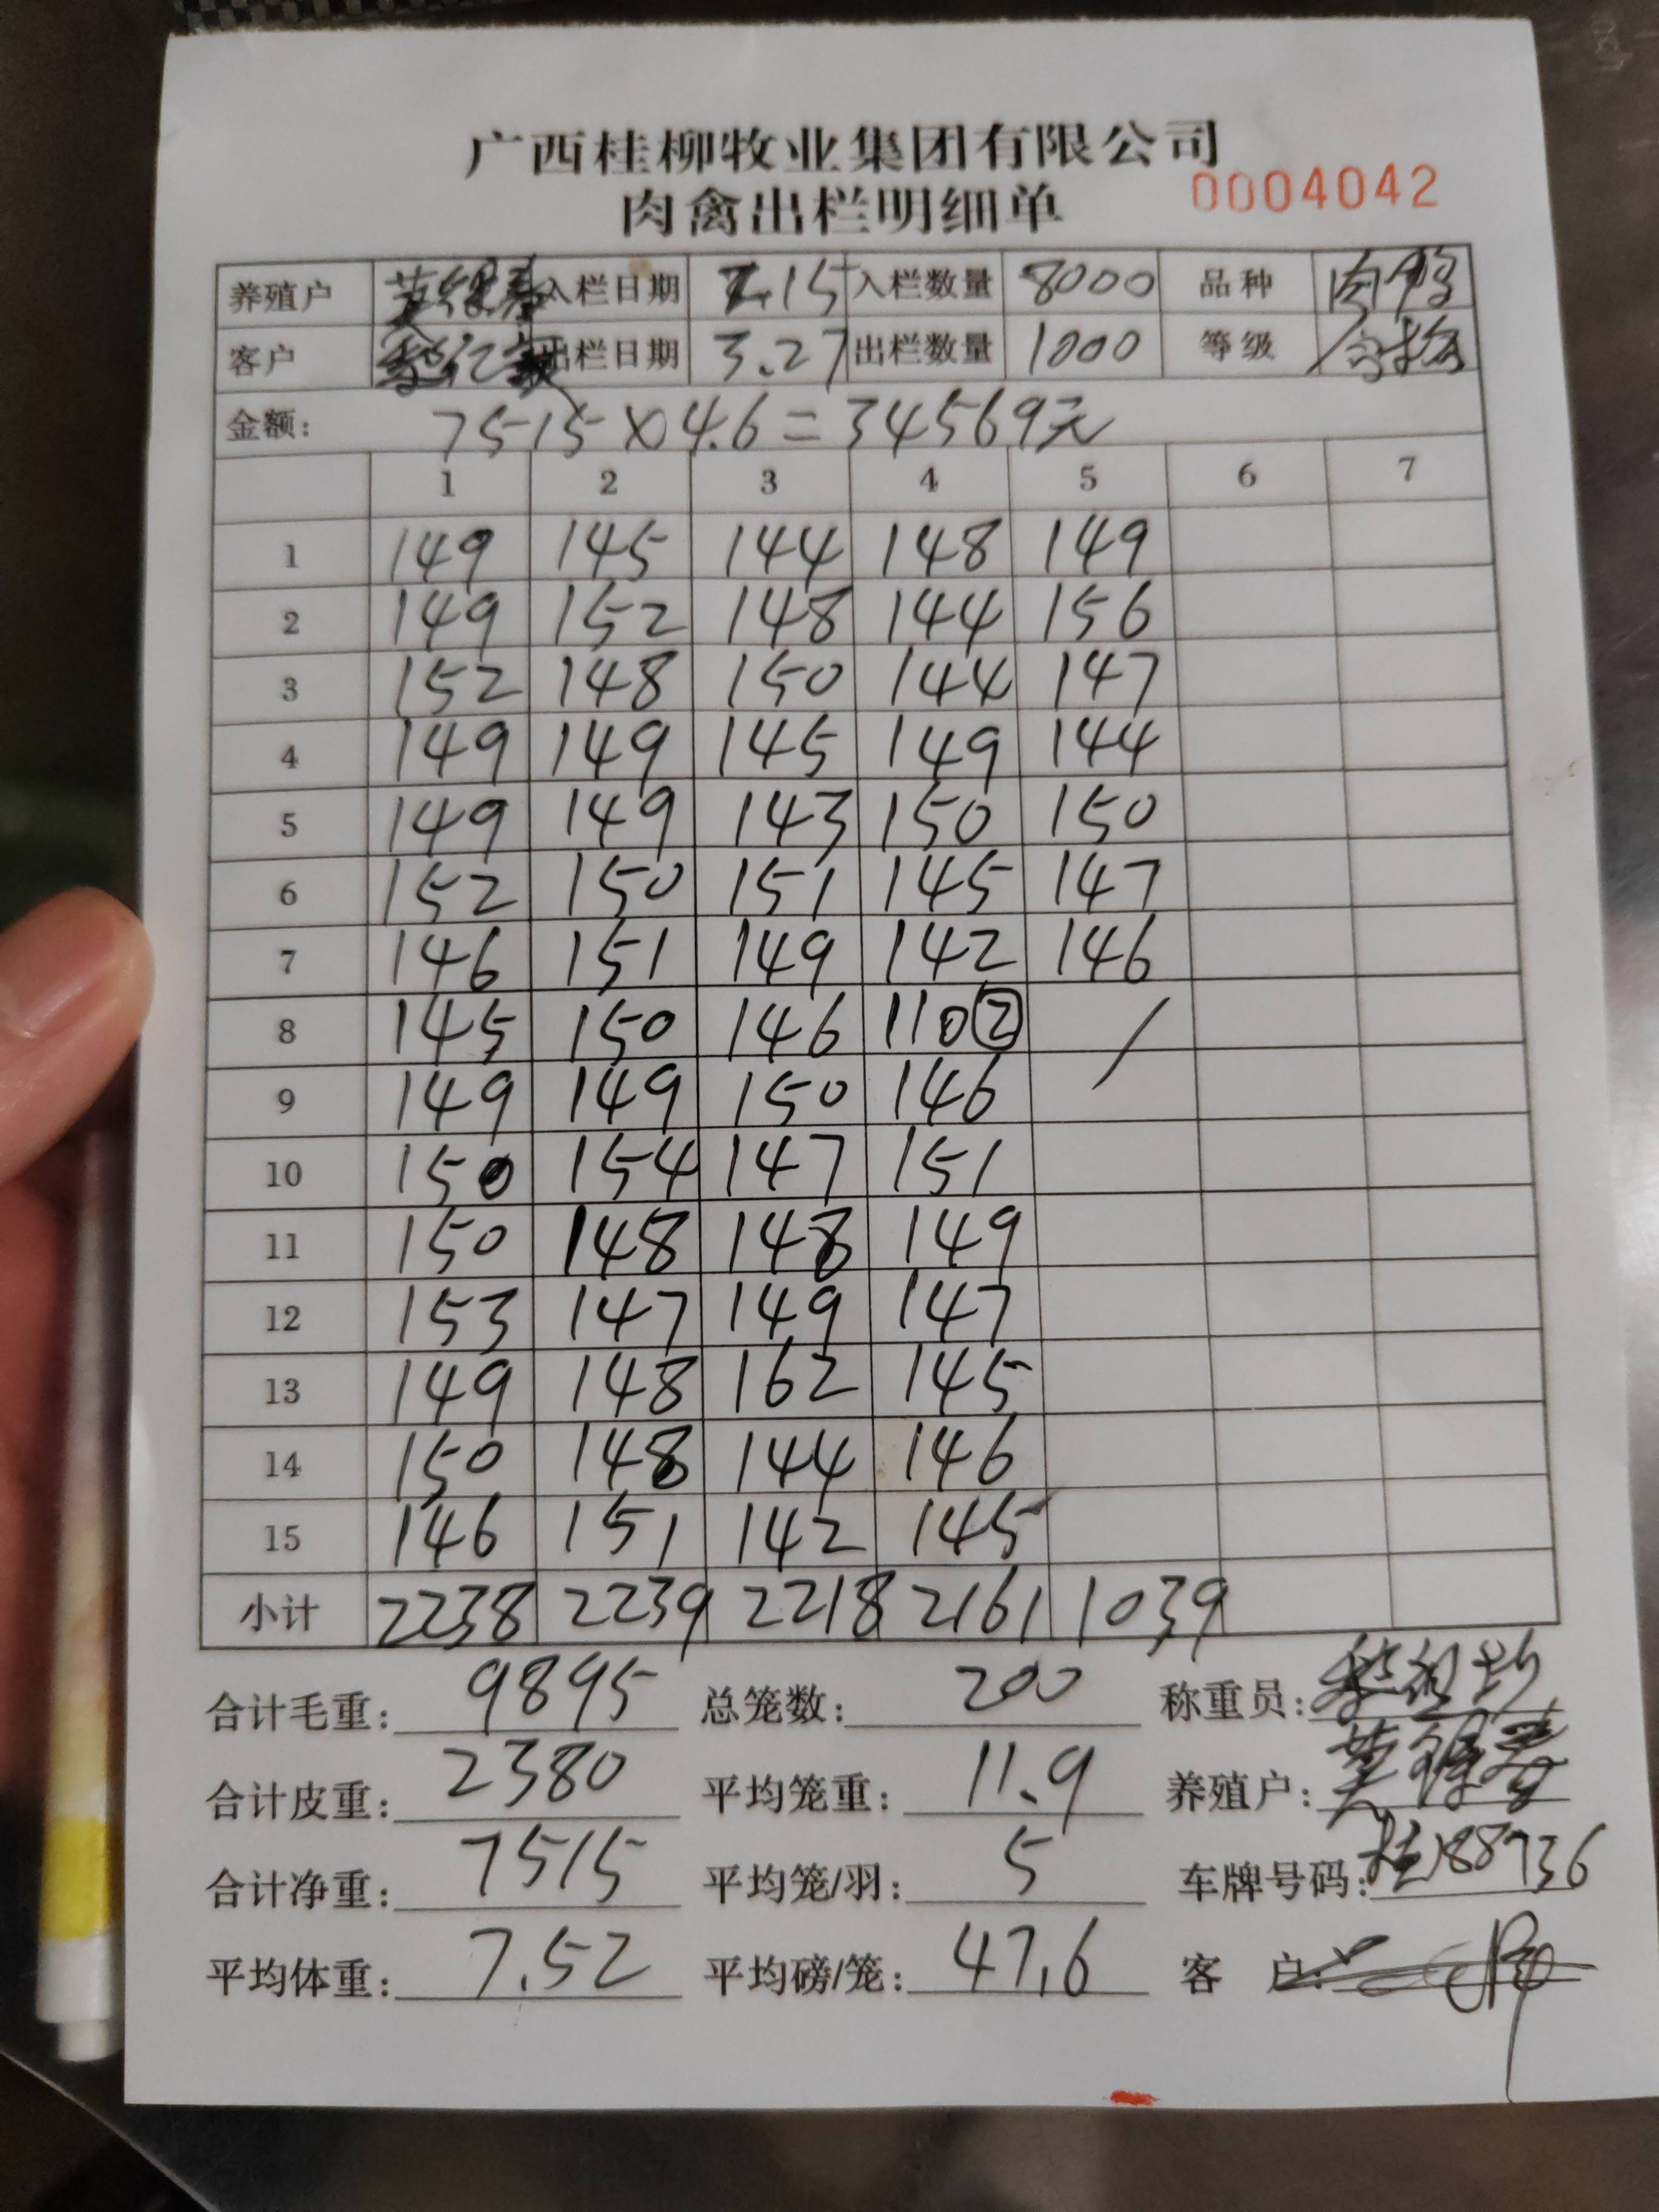 广西桂柳牧业集团有限公司
肉禽出栏明细单 0004042
养殖户 入栏日期 2.15 入栏数量 8000 品种 肉鸭
客户 出栏日期 3.27 出栏数量 1000 等级 合格
金额: 7515×4.6=34569元
1 2 3 4 5 6 7
1 149 145 144 148 149
2 149 152 148 144 156
3 152 148 150 144 147
4 149 149 145 149 144
5 149 149 143 150 150
6 152 150 151 145 147
7 146 151 149 142 146
8 145 150 146 110② /
9 149 149 150 146
10 150 154 147 151
11 150 148 148 149
12 153 147 149 147
13 149 148 162 145
14 150 148 144 146
15 146 151 142 145
小计 2238 2239 2218 2161 1039
合计毛重: 9895 总笼数: 200 称重员:
合计皮重: 2380 平均笼重: 11.9 养殖户:
合计净重: 7515 平均笼/羽: 5 车牌号码: 桂J88736
平均体重: 7.52 平均磅/笼: 47.6 客 户: